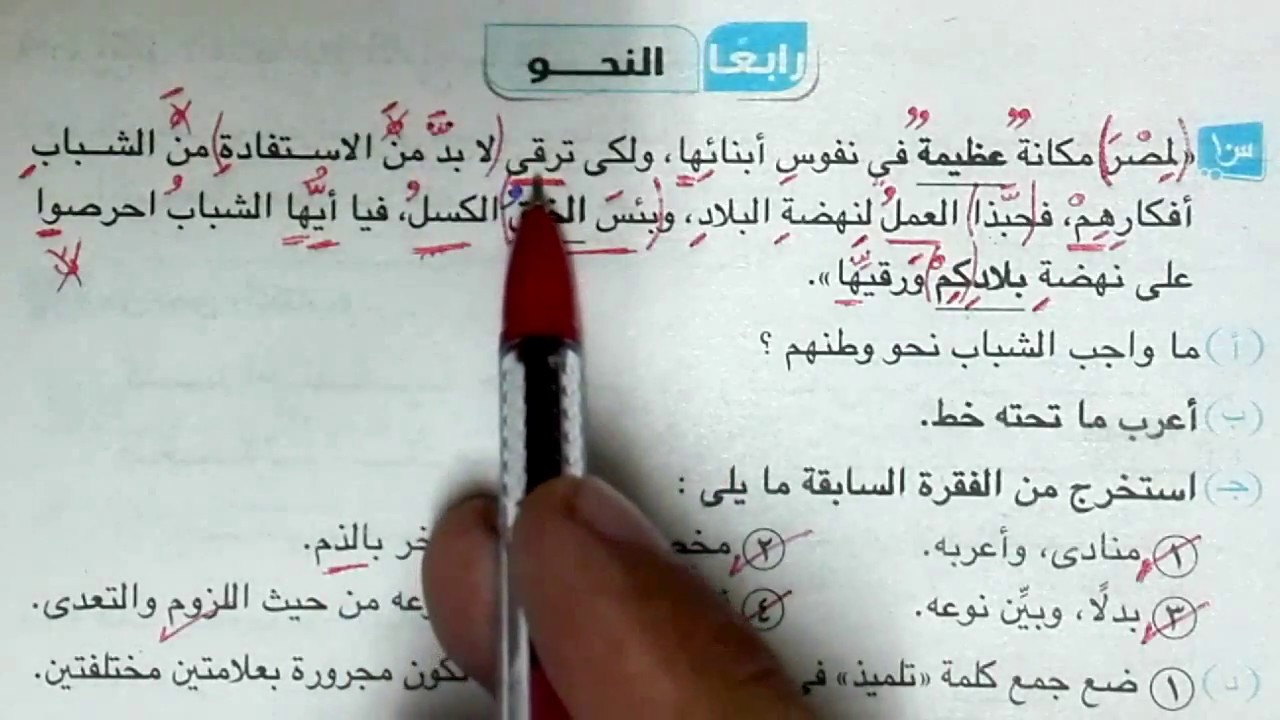 رابعًا النحــو
س١ «لِمِصْرَ مكانةٌ عظيمةٌ في نفوسِ أبنائِها، ولكى ترقى لا بدَّ منَ الاستفادةِ منَ الشبابِ
أفكارِهِمْ، فحبَّذا العملُ لنهضةِ البلادِ، وبئسَ الكسلُ، فيا أيُّها الشبابُ احرصوا
على نهضةِ بلادِكِمْ وَرقيِّها».
(أ) ما واجب الشباب نحو وطنهم ؟
(ب) أعرب ما تحته خط.
(جـ) استخرج من الفقرة السابقة ما يلى :
١ منادى، وأعربه. ٢ بالذم.
٣ بدلًا، وبيِّن نوعه. ٤ من حيث اللزوم والتعدى.
(د) ١ ضع جمع كلمة «تلميذ» تكون مجرورة بعلامتين مختلفتين.